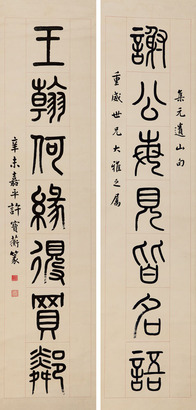 謝公每見皆名語
集元遺山句
重威世兄大雅之属
王翰何緣得買鄰
辛未嘉平許寶蘅篆